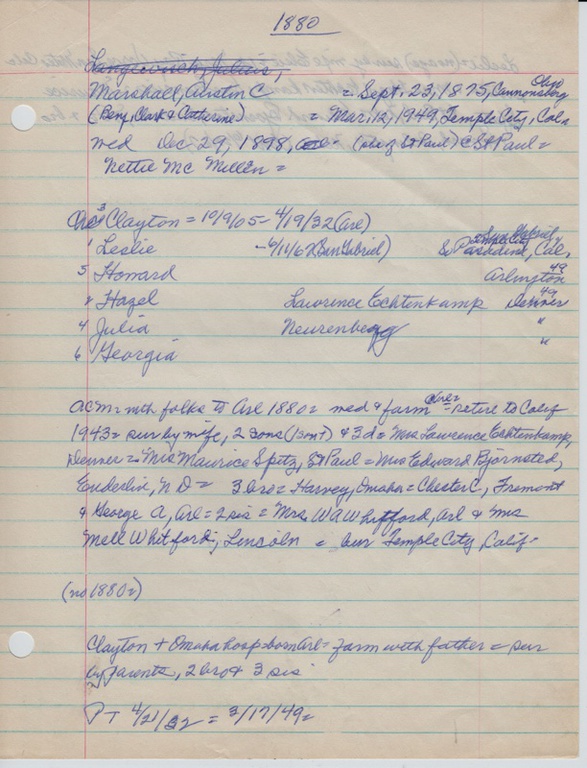 1880
Marshall, Austin C = Sept. 23, 1875, Cannonsburg Ohio
(Benj. Clark & Catherine) = Mar, 12, 1949, Temple City, Cal
wed Dec 29, 1898, St Paul =
Nettie Mc Millen =
3 Clayton = 10/9/05 - 4/19/32 (arl)
1 Leslie - 6/11/62 (San Gabriel) San Gabriel Temple City So Pasadena, Cal,
5 Howard Arlington 49
Hazel Lawrence Echtenkamp Denver 49
4 Julia "
6 Georgia "
ACM = with folks to Arl 1880 = wed & farm Arl = retire to Calif
1943 = sur by wife, 2 sons (/sons) & 3 d = Mrs Lawrence Echtenkamp,
Denver = Mrs Maurice Spitz, St Paul = Mrs Edward Bjornsted,
Enderlin, N D = 3 bro = Harvey, Omaha = Chester C, Fremont
& George A, Arl = 2 sis = Mrs. W A Whitford, Arl & Mrs
Mell Whitford, Lincoln = bur Temple City, Calif -
(no 1880 =)
Clayton + Omaha hosp = born Arl = farm with father = sur
by parents, 2 bro & 3 sis
PT 4/21/32 = 3/17/49 =